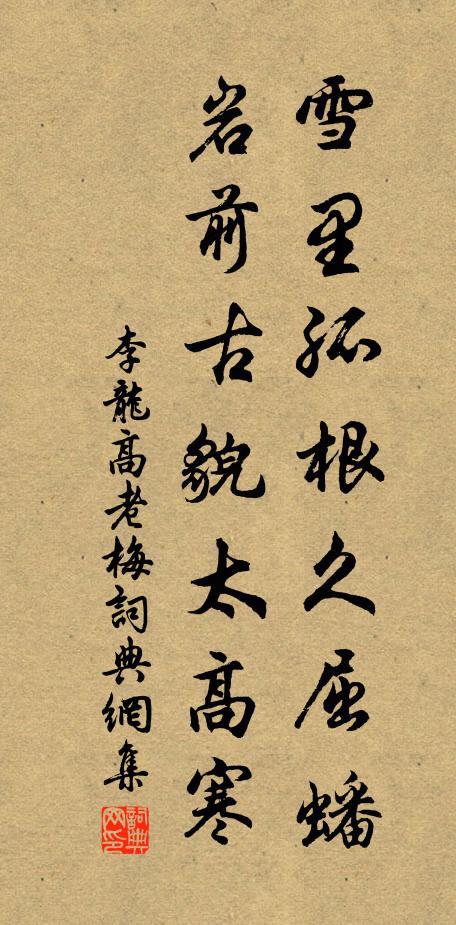 雪里孤根久屈蟠
岩前古貌太高寒
李龍高老梅詞典網集
詞典网印